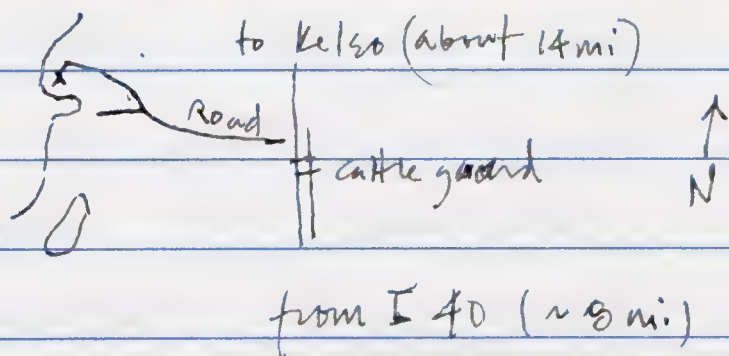 to Kelso (about 14 mi)
x
Road
cattle guard
N
from I 40 (~ 8 mi.)